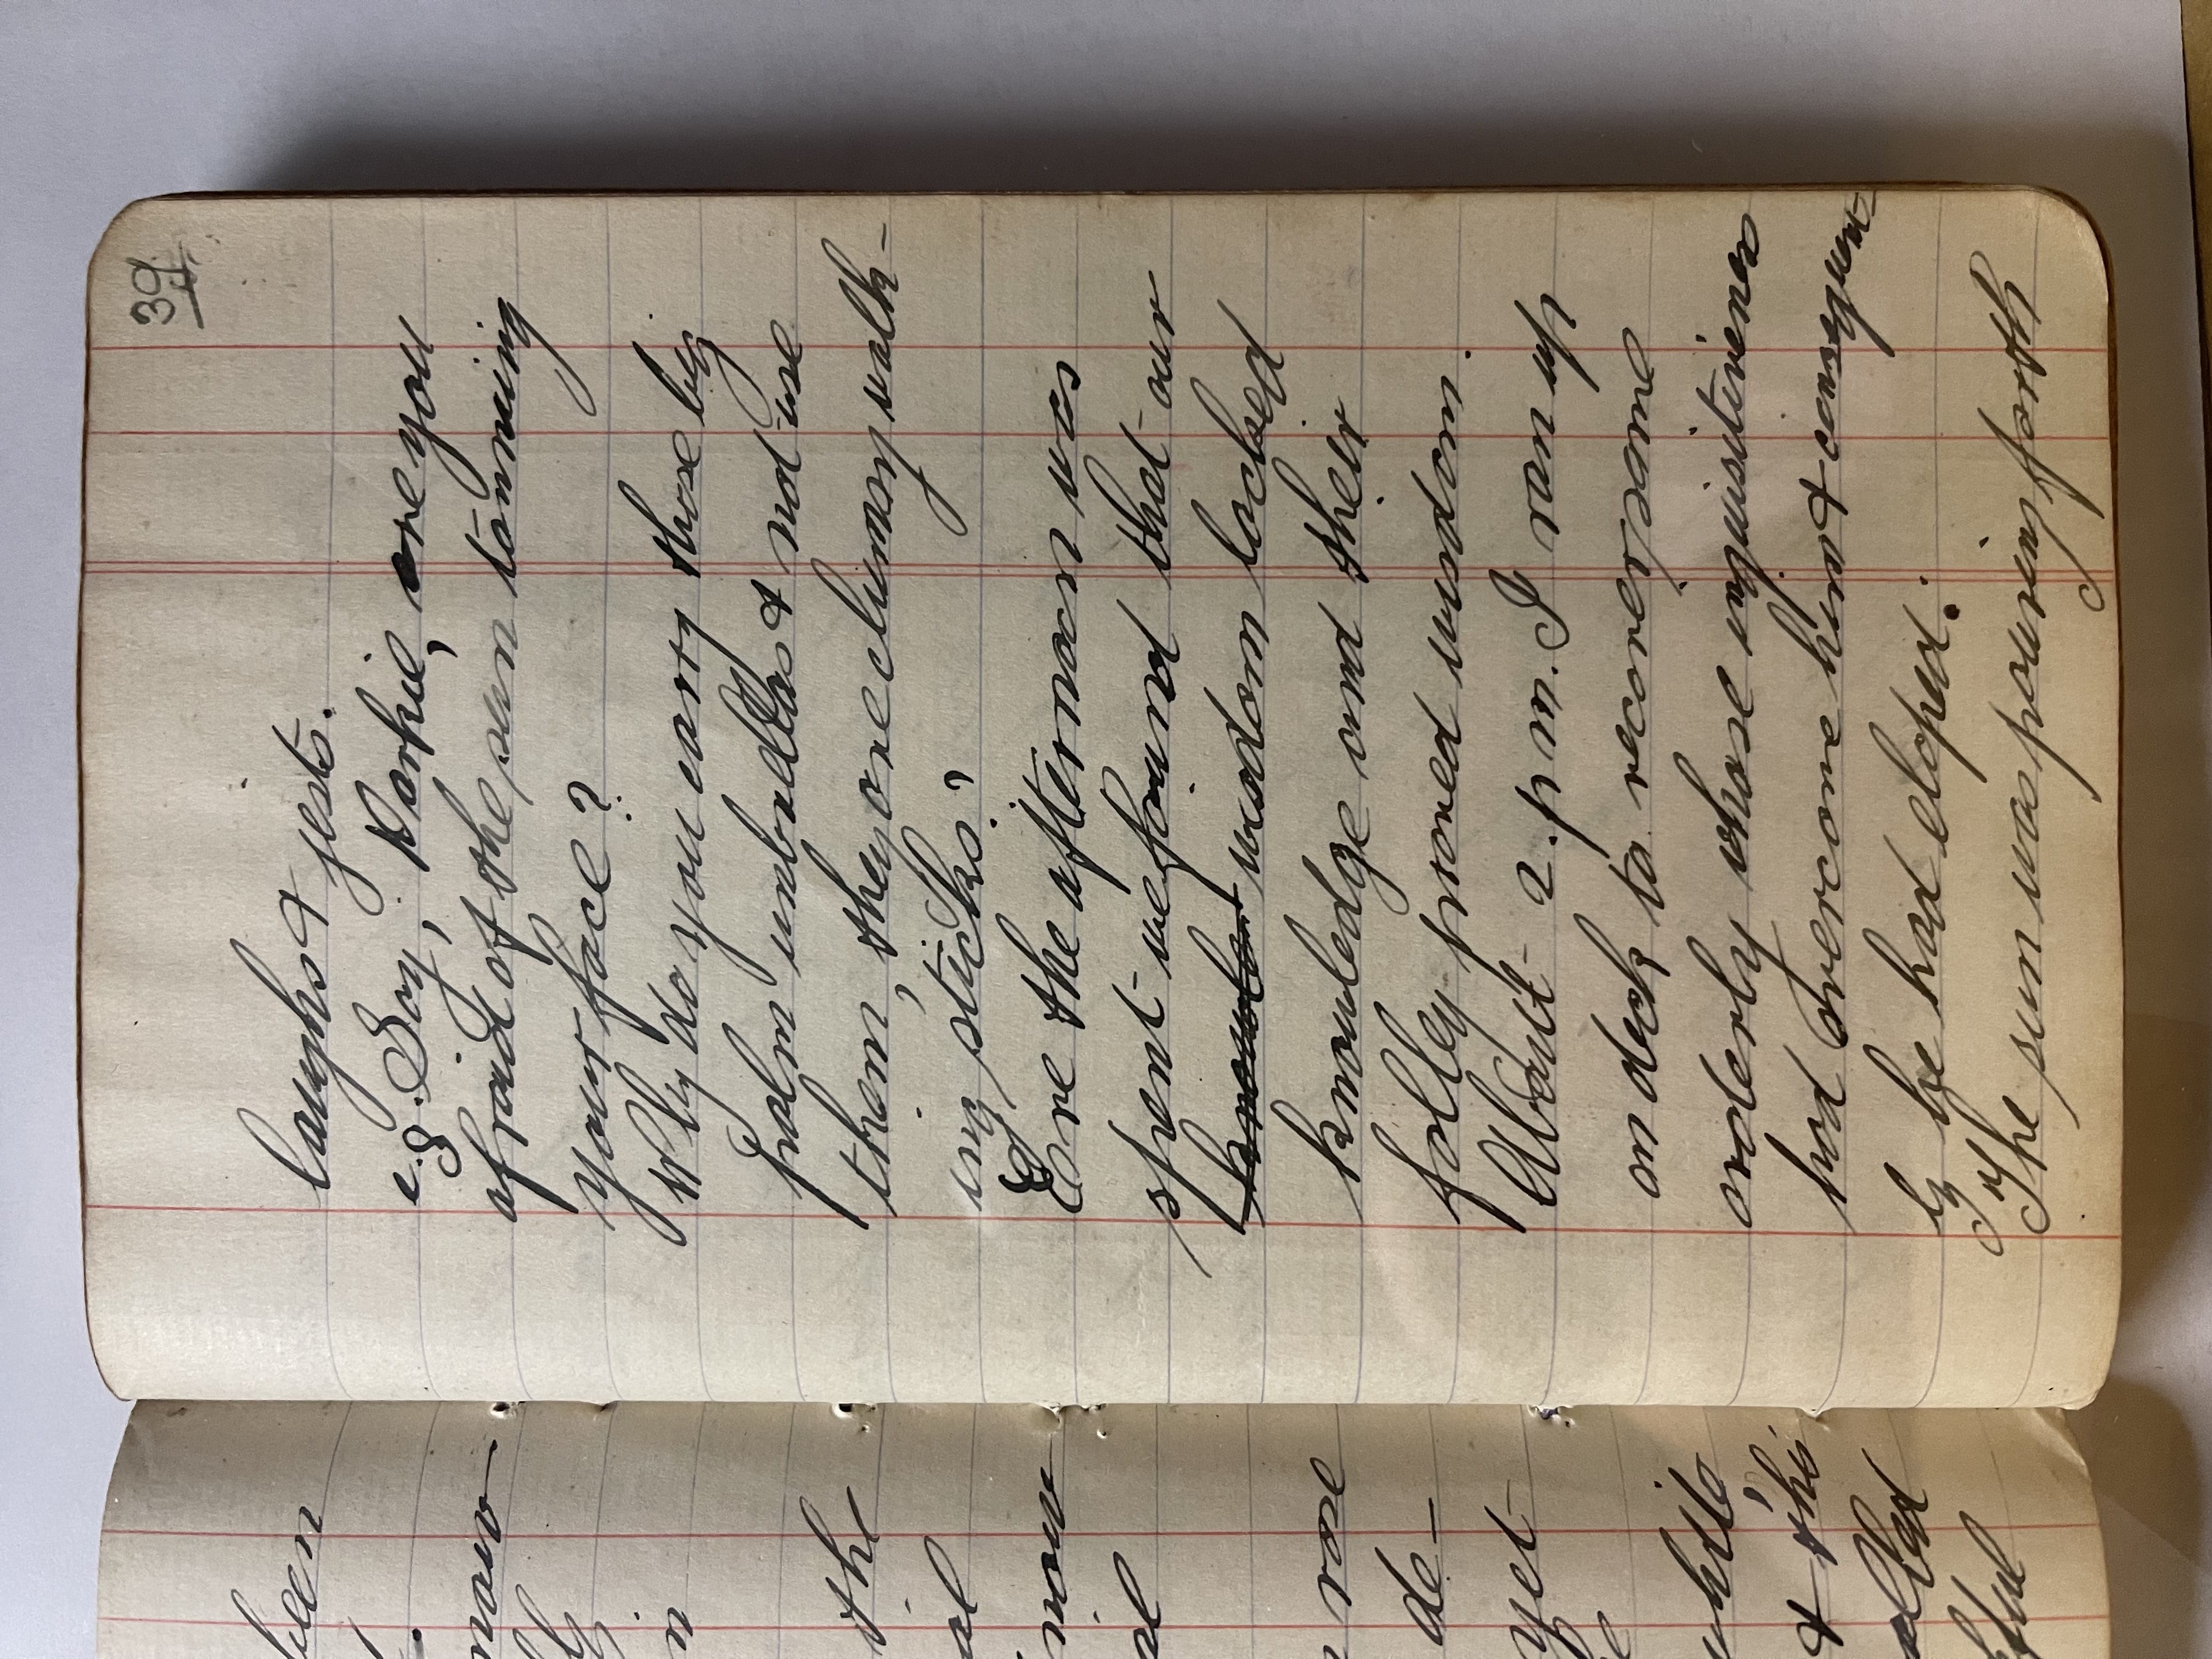 39
laughs & jests.
e.g. Say, Darkie, are you
afraid of the sun tanning
your face?
Why do you carry those big
palm umbrellas & not use
them, they are clumsy walk-
ing sticks?
Ere the afternoon was
spent we found that our
wisdom lacked
knowledge and their
folley proved wisdom.
About 2. p.m. I ran up
on deck to recover some
orderly whose inquisitiveness
had overcome him & consequent-
ly he had eloped.
The sun was pouring forth
been
now
the
now
rose
de-
yet
while
& this